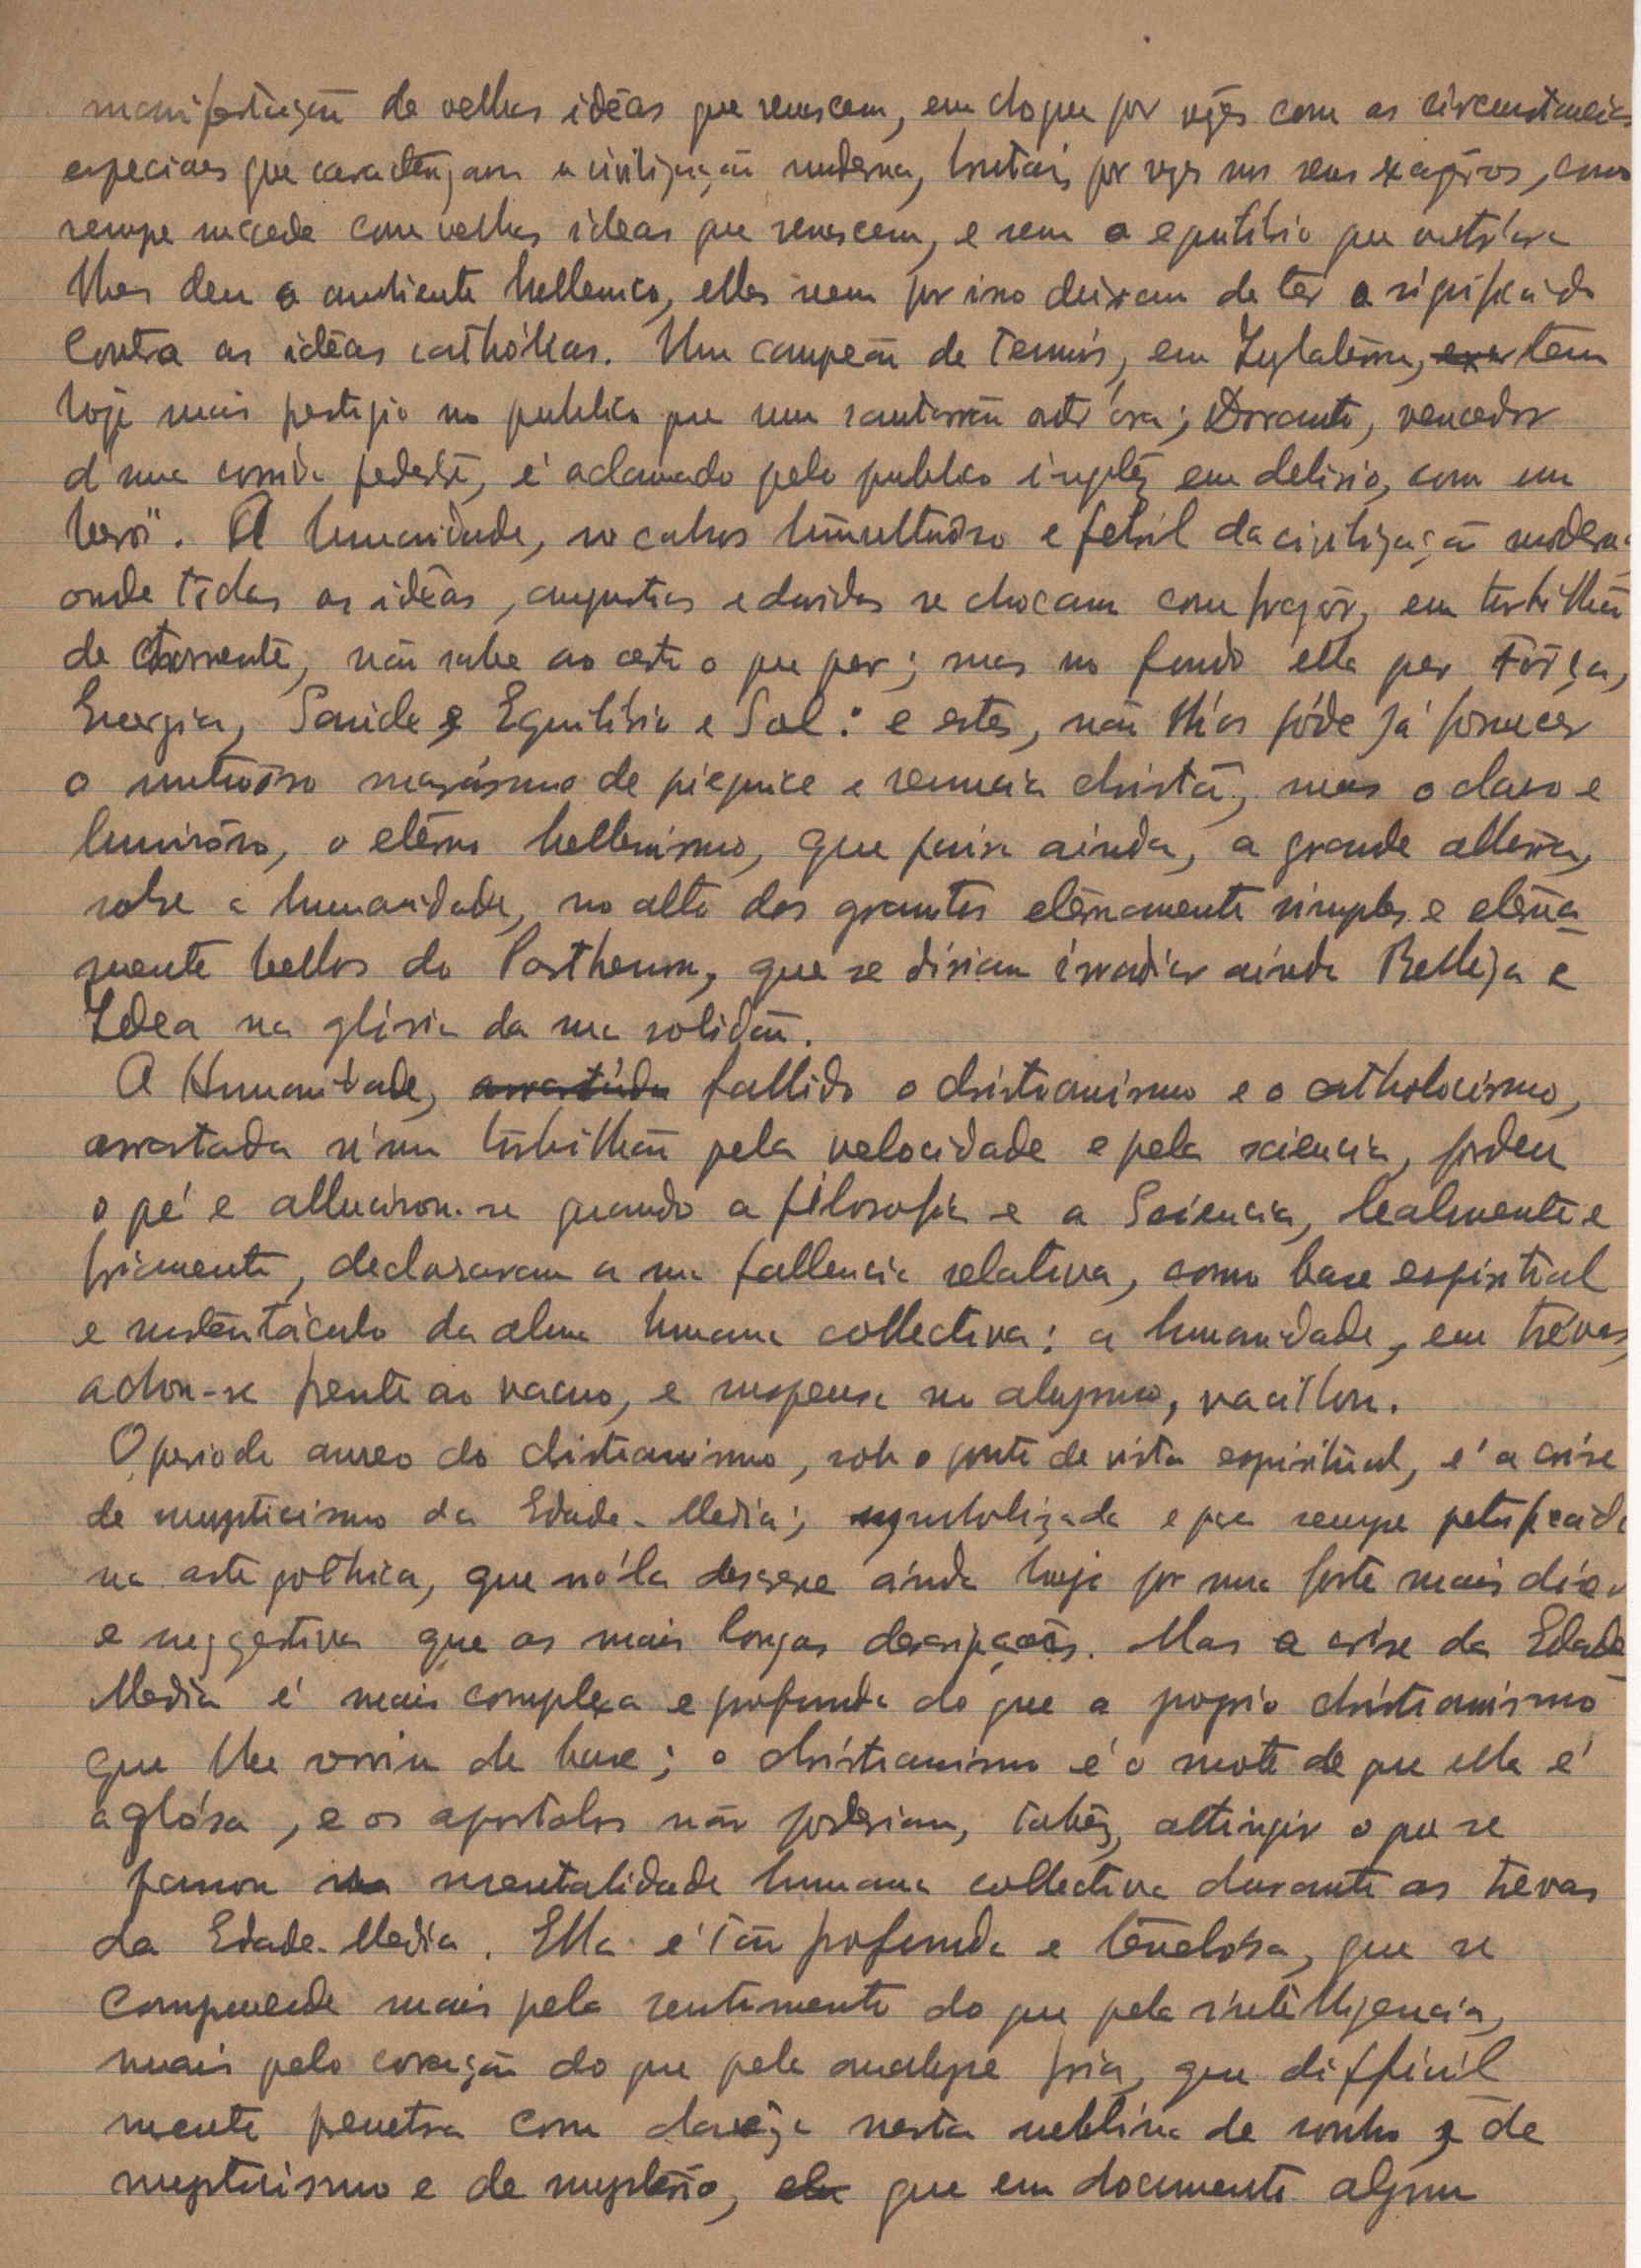 manifestação de velhas idéas que renascem, em choque por vezes com as circumstancias
especiaes que caracterizam a civilização moderna, brutais por vezes nos seus exagêros, como
sempre succede com velhas ideas que renascem, e sem o equilibrio que outróra
lhes deu o ambiente hellenico, elles nem por isso deixam de ter o significado
contra as idéas cathólicas. Um campeão de tennis, em Inglaterra, tem
hoje mais prestigio no publico que um santarrão outr'óra; Dorando, vencedor
d'uma corrida pedestre, é aclamado pelo publico inglêz em delirio, com um
heroi". A humanidade, no cahos tumultuôso e febril da civilização moderna
onde tôdas as idéas, angustias e duvidas se chocam com fragôr, em turbilhão
de torrente, não sabe ao certo o que quer; mas no fundo ella quer Fôrça,
Energia, Saúde, Equilibrio e Sol: e estes, não lh'os póde já fornecer
o marásmo de pieguice e renuncia christã, mas o claro e
luminôso, o etérno hellenismo, que paira ainda, a grande altura,
sobre a humanidade, no alto dos granitos etérnamente simples e etérna-
mente bellos do Parthenon, que se diriam irradiar ainda Belleza e
Idea na glória da sua solidão.
A Humanidade, fallido o christianismo e o catholocismo,
arrastada n'um turbilhão pela velocidade e pela sciencia, perdeu
o pé e allucinou-se quando a filosofia e a Sciencia, lealmente e
friamente, declararam a sua fallencia relativa, como base espiritual
e sustentáculo da alma humana collectiva: a humanidade, em trévas,
achou-se frente ao vacuo, e suspensa no abysmo, vacillou.
O periodo aureo do christianismo, sob o ponto de vista espiritual, é a crise
de mysticismo da Edade-Media; symbolizada e para sempre petrificada
na arte gothica, que nó'la descreve ainda hoje por uma forte mais
e suggestiva que as mais longas descripções. Mas a crise da Edade
Media é mais complexa e profunda do que o proprio christianismo
que lhe serviu de base; o christianismo é o mote de que ella é
a glósa, e os apostolos não poderiam, talvêz, attingir o que se
passou na mentalidade humana collectiva durante as trevas
da Edade-Media. Ella é tão profunda e tenebrosa, que se
comprehende mais pelo sentimento do que pela intelligencia,
mais pelo coração do que pela analyse fria, que difficil
mente penetra com clareza nesta neblina de sonho, de
mysticismo e de mystério, que em documento algum